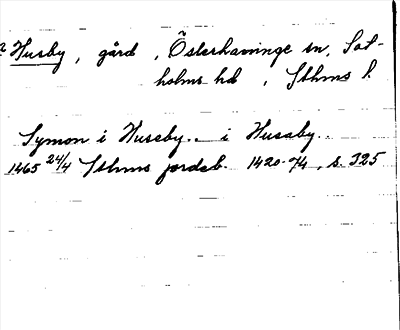 Husby, gård, Österhaninge sn, Sot-
holms hd, Sthms l.
Symon i Huseby.. i Husaby..
1465 24/4 Sthms jordeb. 1420-74, s. 325